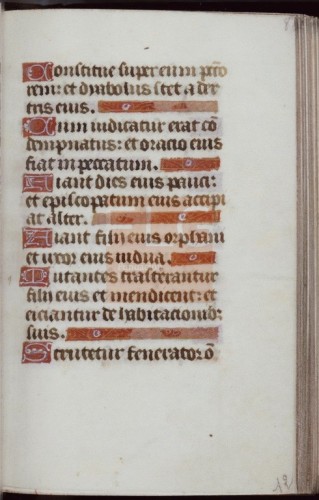 Constitue super eum pecto
rem: et dyabolus stet a dex
tris eius.
Cum iudicatur erat cō
dempnatus: et oracio eius
fiat in peccatum.
Fiant dies eius pauci:
et episcopatum eius accipi
at alter.
Fiant filii eius orphani
et uxor eius uidua.
Nutantes trasferantur
filii eius et mendicent: et
eiciantur de habitacionib:
suis.
Scrutetur fenerator ō
12